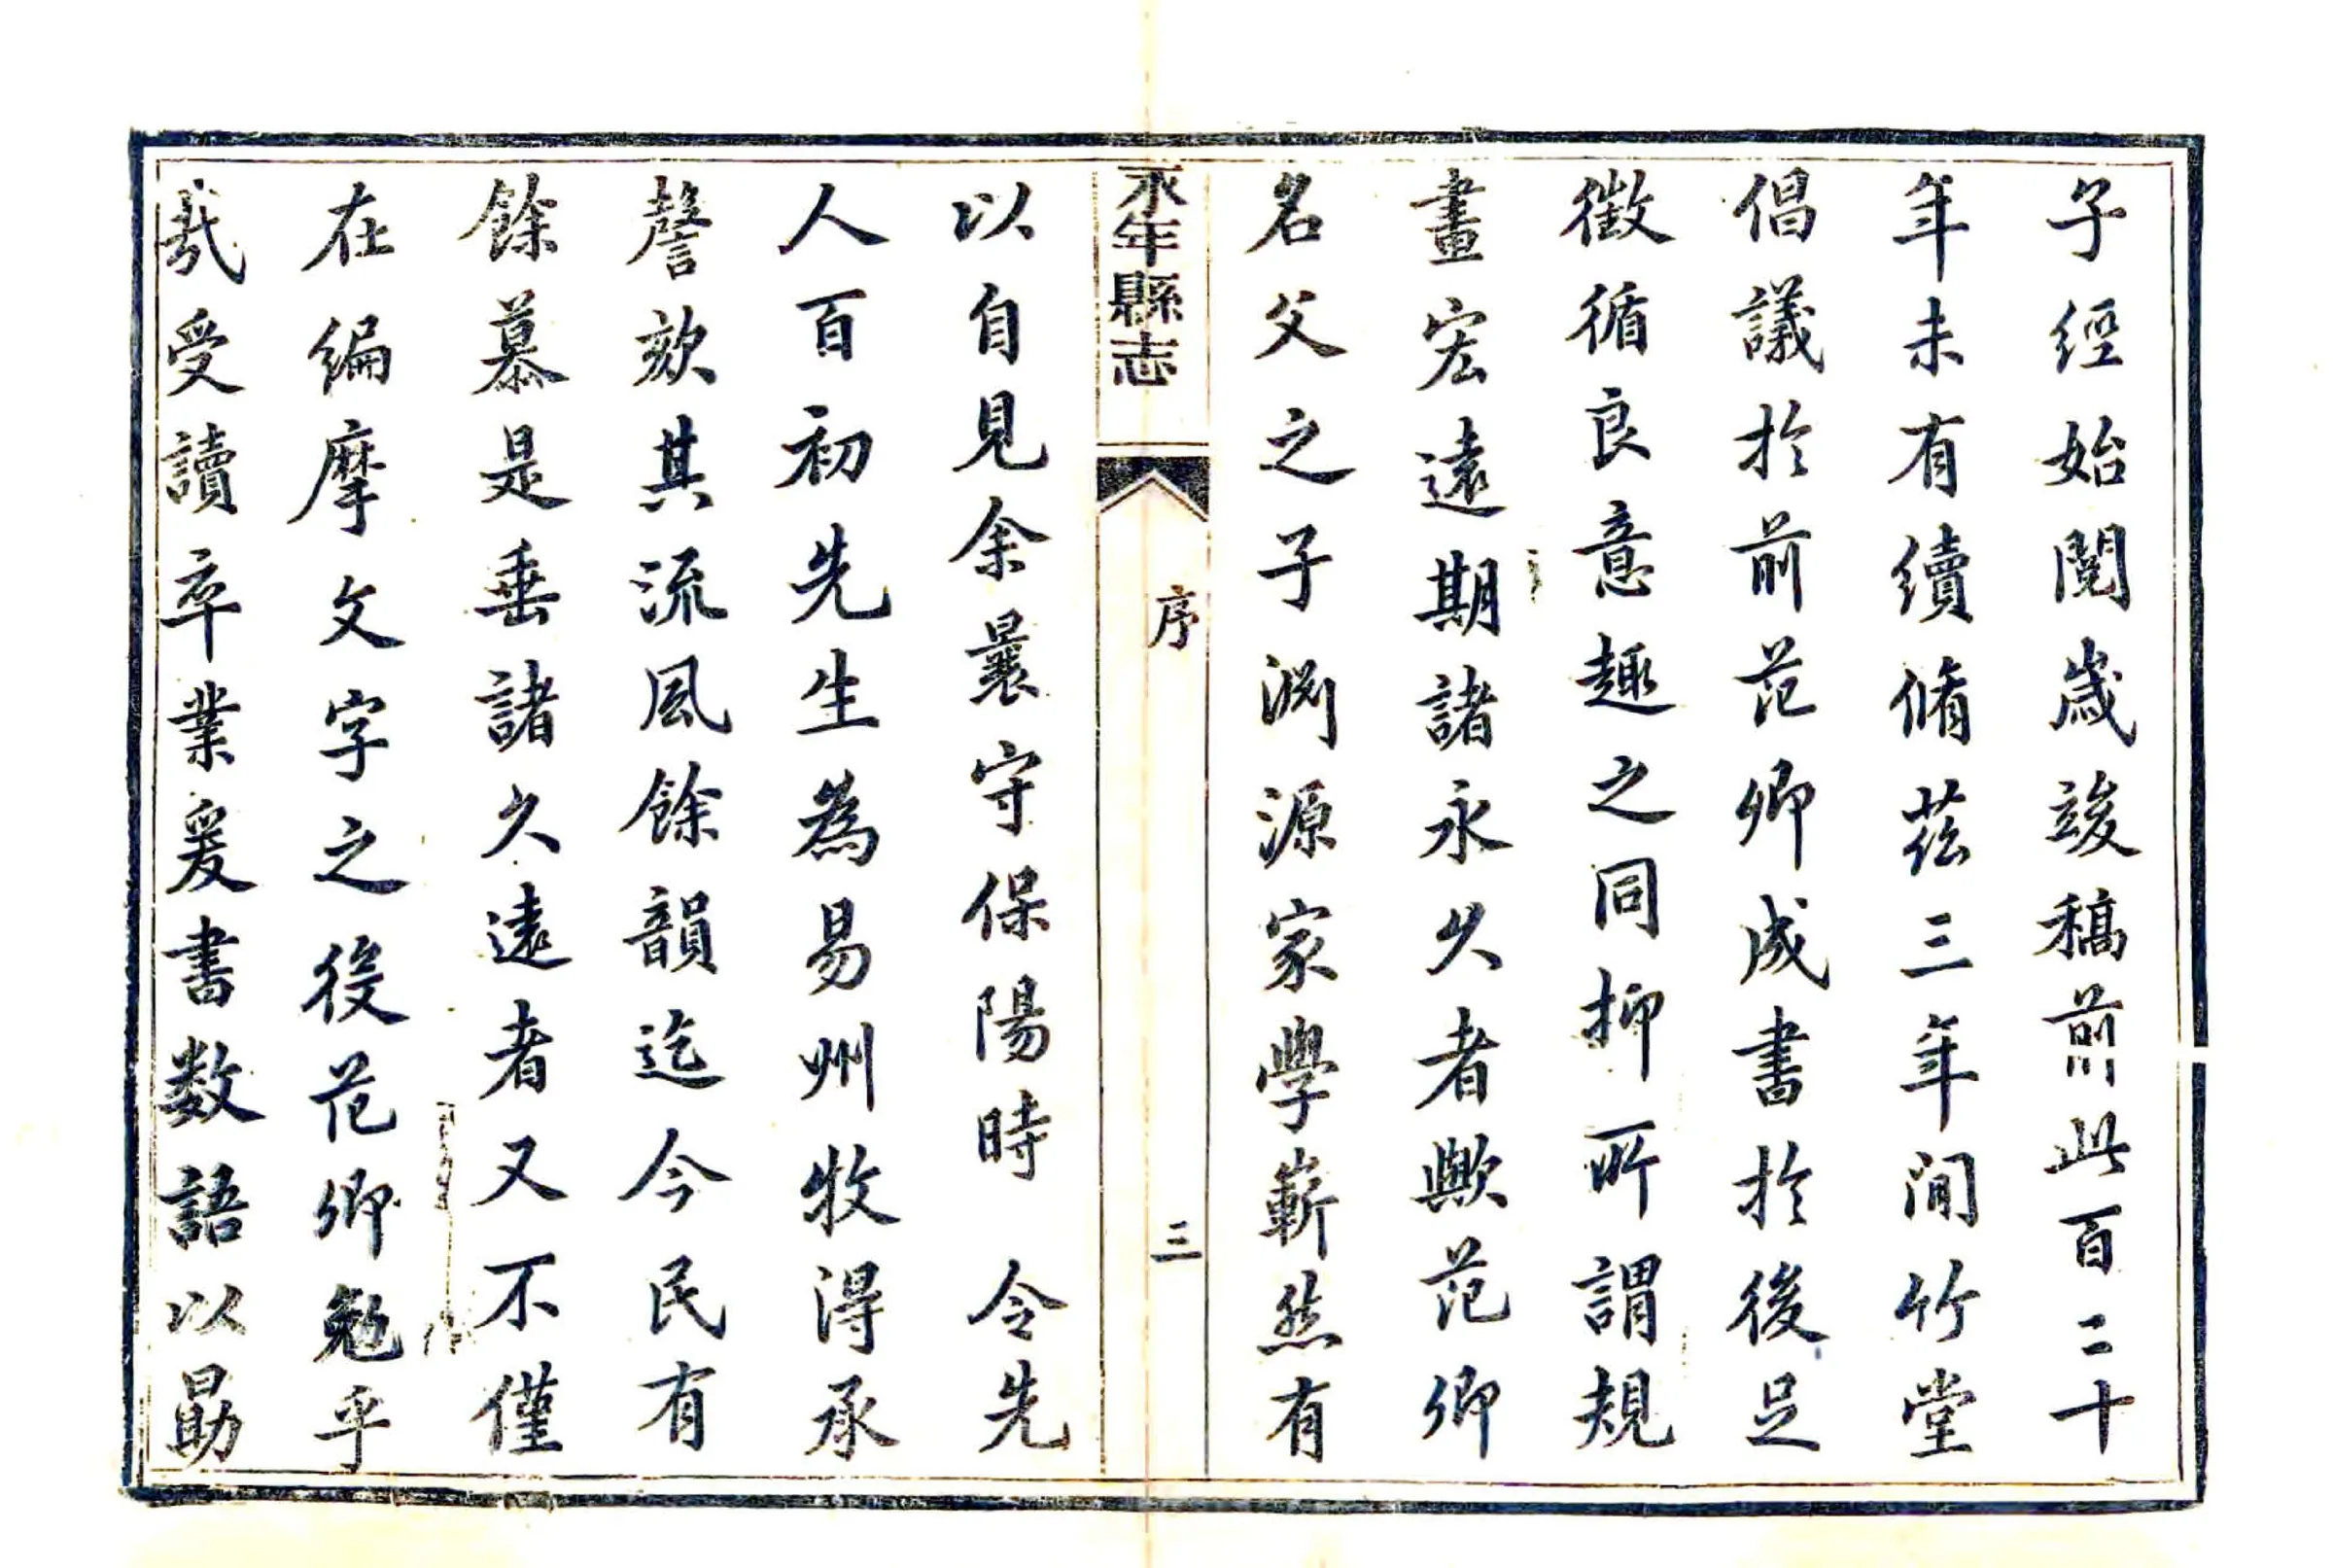 子經始閱歲竣稿前此百二十
年未有續脩茲三年間竹堂
倡議於前范卿成書於後足
徵循良意趣之同抑所謂規
畫宏遠期諸永久者歟范卿
名父之子淵源家學嶄然有
永年縣志
序
三
以自見余曩守保陽時 令先
人百初先生為易州牧得承
謦欬其流風餘韻迄今民有
餘慕是垂諸久遠者又不僅
在編摩文字之後范卿勉乎
哉受讀卒業爰書数語以勖